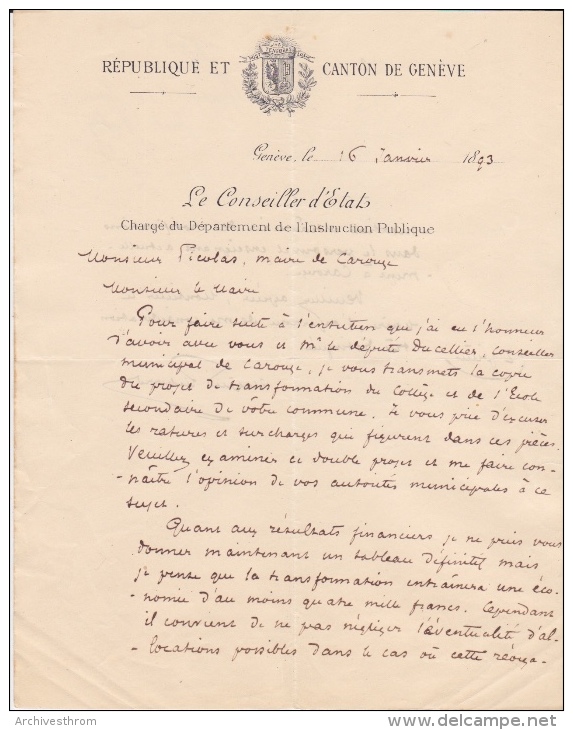 RÉPUBLIQUE ET CANTON DE GENÈVE
Genève, le 16 Janvier 1893
Le Conseiller d'Etat
Chargé du Département de l'Instruction Publique
Monsieur Picolas, maire de Carouge
Monsieur le Maire
Pour faire suite à l'entretien que j'ai eu l'honneur
d'avoir avec vous et Mr le député Ducellier, conseiller
municipal de Carouge, je vous transmets la copie
du projet de transformation du Collège et de l'Ecole
secondaire de vôtre commune. Je vous prie d'excuser
les ratures et surcharges qui figurent dans ces pièces.
Veuillez examiner ce double projet et me faire con-
-naître l'opinion de vos autorités municipales à ce
sujet.
Quant aux résultats financiers je ne puis vous
donner maintenant un tableau définitif mais
je pense que la transformation entraînera une éco-
-nomie d'au moins quatre mille francs. Cependant
il convient de ne pas négliger l'éventualité d'al-
-locations possibles dans le cas où cette
Archivesthrom
delcampe.net